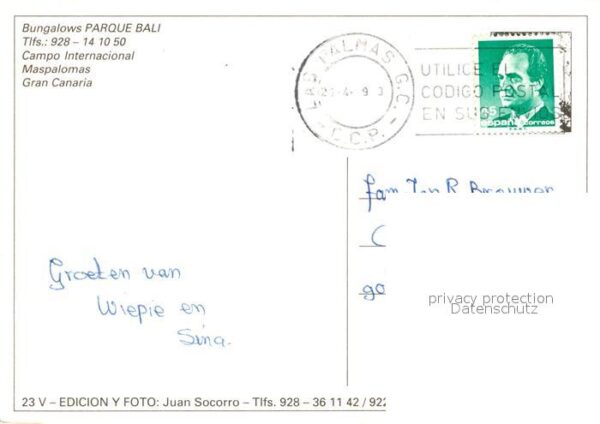 Bungalows PARQUE BALI
Tlfs.: 928 – 14 10 50
Campo Internacional
Maspalomas
Gran Canaria
LAS PALMAS G.C.
C.C.P.
UTILICE E
CODIGO POSTAL
EN SUS
españa correos
fam
Groeten van
Wiepie en
Sina.
privacy protection
Datenschutz
23 V – EDICION Y FOTO: Juan Socorro – Tlfs. 928 – 36 11 42 / 922